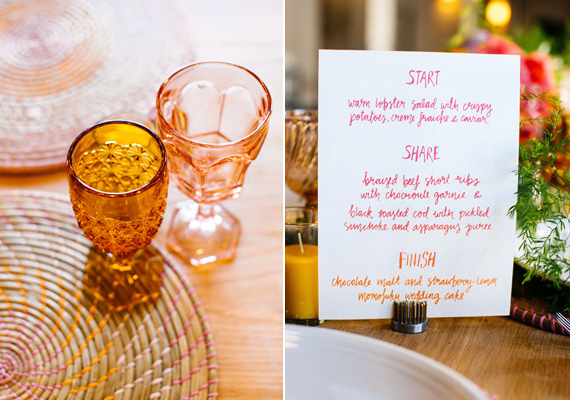 START
warm lobster salad with crispy
potatoes, creme fraiche & caviar
SHARE
braised beef short ribs
with choucroute garnie &
black roasted cod with pickled
sunchoke and asparagus puree
FINISH
chocolate malt and strawberry-lemon
momofuku wedding cake